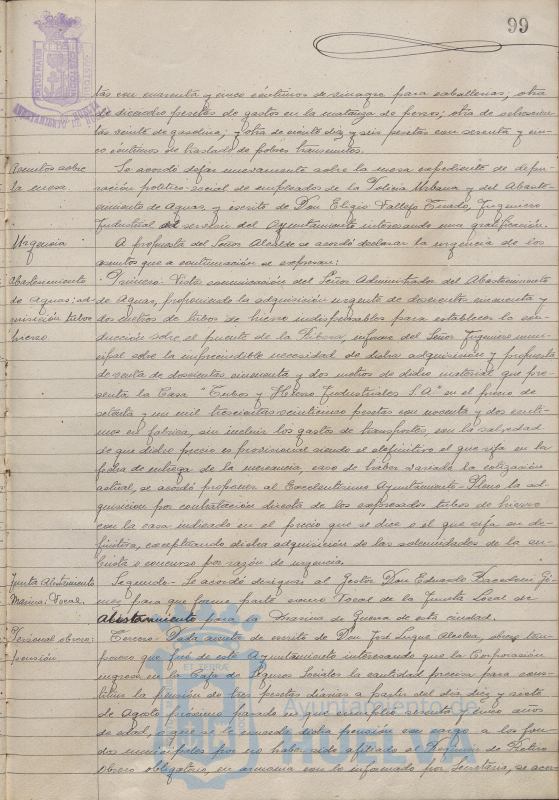 99
tas con cuarenta y cinco céntimos de vinagre para caballerias; otra
de dieciocho pesetas de gastos en la matanza de perros; otra de
las veinte de gasolina; y otra de ciento diez y seis pesetas con sesenta y cin-
co céntimos de traslado de pobres transeuntes.
Asuntos sobre
la mesa.
Se acordó dejar nuevamente sobre la mesa expediente de depu-
ración político-social de empleados de la Policia Urbana y del Abaste-
cimiento de Aguas, y escrito de Don Eligio Vallejo Tirado, Ingeniero
Industrial al servicio del Ayuntamiento interesando una gratificación.
Urgencia
A propuesta del Señor Alcalde se acordó declarar la urgencia de los
asuntos que a continuación se expresan:
Abastecimiento
de Aguas; ad-
quisición tubos
hierro
Primero- Vista comunicación del Señor Administrador del Abastecimiento
de Aguas, proponiendo la adquisición urgente de doscientos cincuenta y
dos metros de tubos de hierro indispensables para establecer la con-
ducción sobre el puente de la Ribera, informe del Señor Ingeniero muni-
cipal sobre la imprescindible necesidad de dicha adquisición y propuesta
de venta de doscientos cincuenta y dos metros de dicho material que pre-
senta la Casa "Tubos y Hierros Industriales S.A" en el precio de
setenta y un mil trescientas veintiuna pesetas con noventa y dos cénti-
mos en fábrica, sin incluir los gastos de transportes, con la salvedad
de que dicho precio es provisional siendo el definitivo el que rija en la
fecha de entrega de la mercancia, caso de haber variado la cotización
actual, se acordó proponer al Excelentisimo Ayuntamiento Pleno la ad-
quisición por contratación directa de los expresados tubos de hierro
con la casa indicada en el precio que se dice o el que rija en de-
finitiva, exceptuando dicha adquisición de las solemnidades de la su-
basta o concurso por razón de urgencia.
Junta Alistamiento
Marina: Vocal.
Segundo- Se acordó designar al Gestor Don Eduardo Gó-
mez para que forme parte como Vocal de la Junta Local de
Alistamiento para la Marina de Guerra de esta ciudad.
Personal obrero:
pensión
Tercero- Dada cuenta de escrito de Don José Luque obrero tem-
porero que fué de este Ayuntamiento interesando que la Corporación
ingrese en la Caja de Seguros Sociales la cantidad precisa para cons-
tituir la pensión de tres pesetas diarias a partir del dia diez y siete
de Agosto próximo pasado en que cumplió sesenta y cinco años
de edad, o que se le conceda dicha pensión con cargo a los fon-
dos municipales por no haber sido afiliado al Régimen de Retiro
obrero obligatorio, en armonia con lo informado por Secretaria, se acor-
Ayuntamiento de
HUELVA